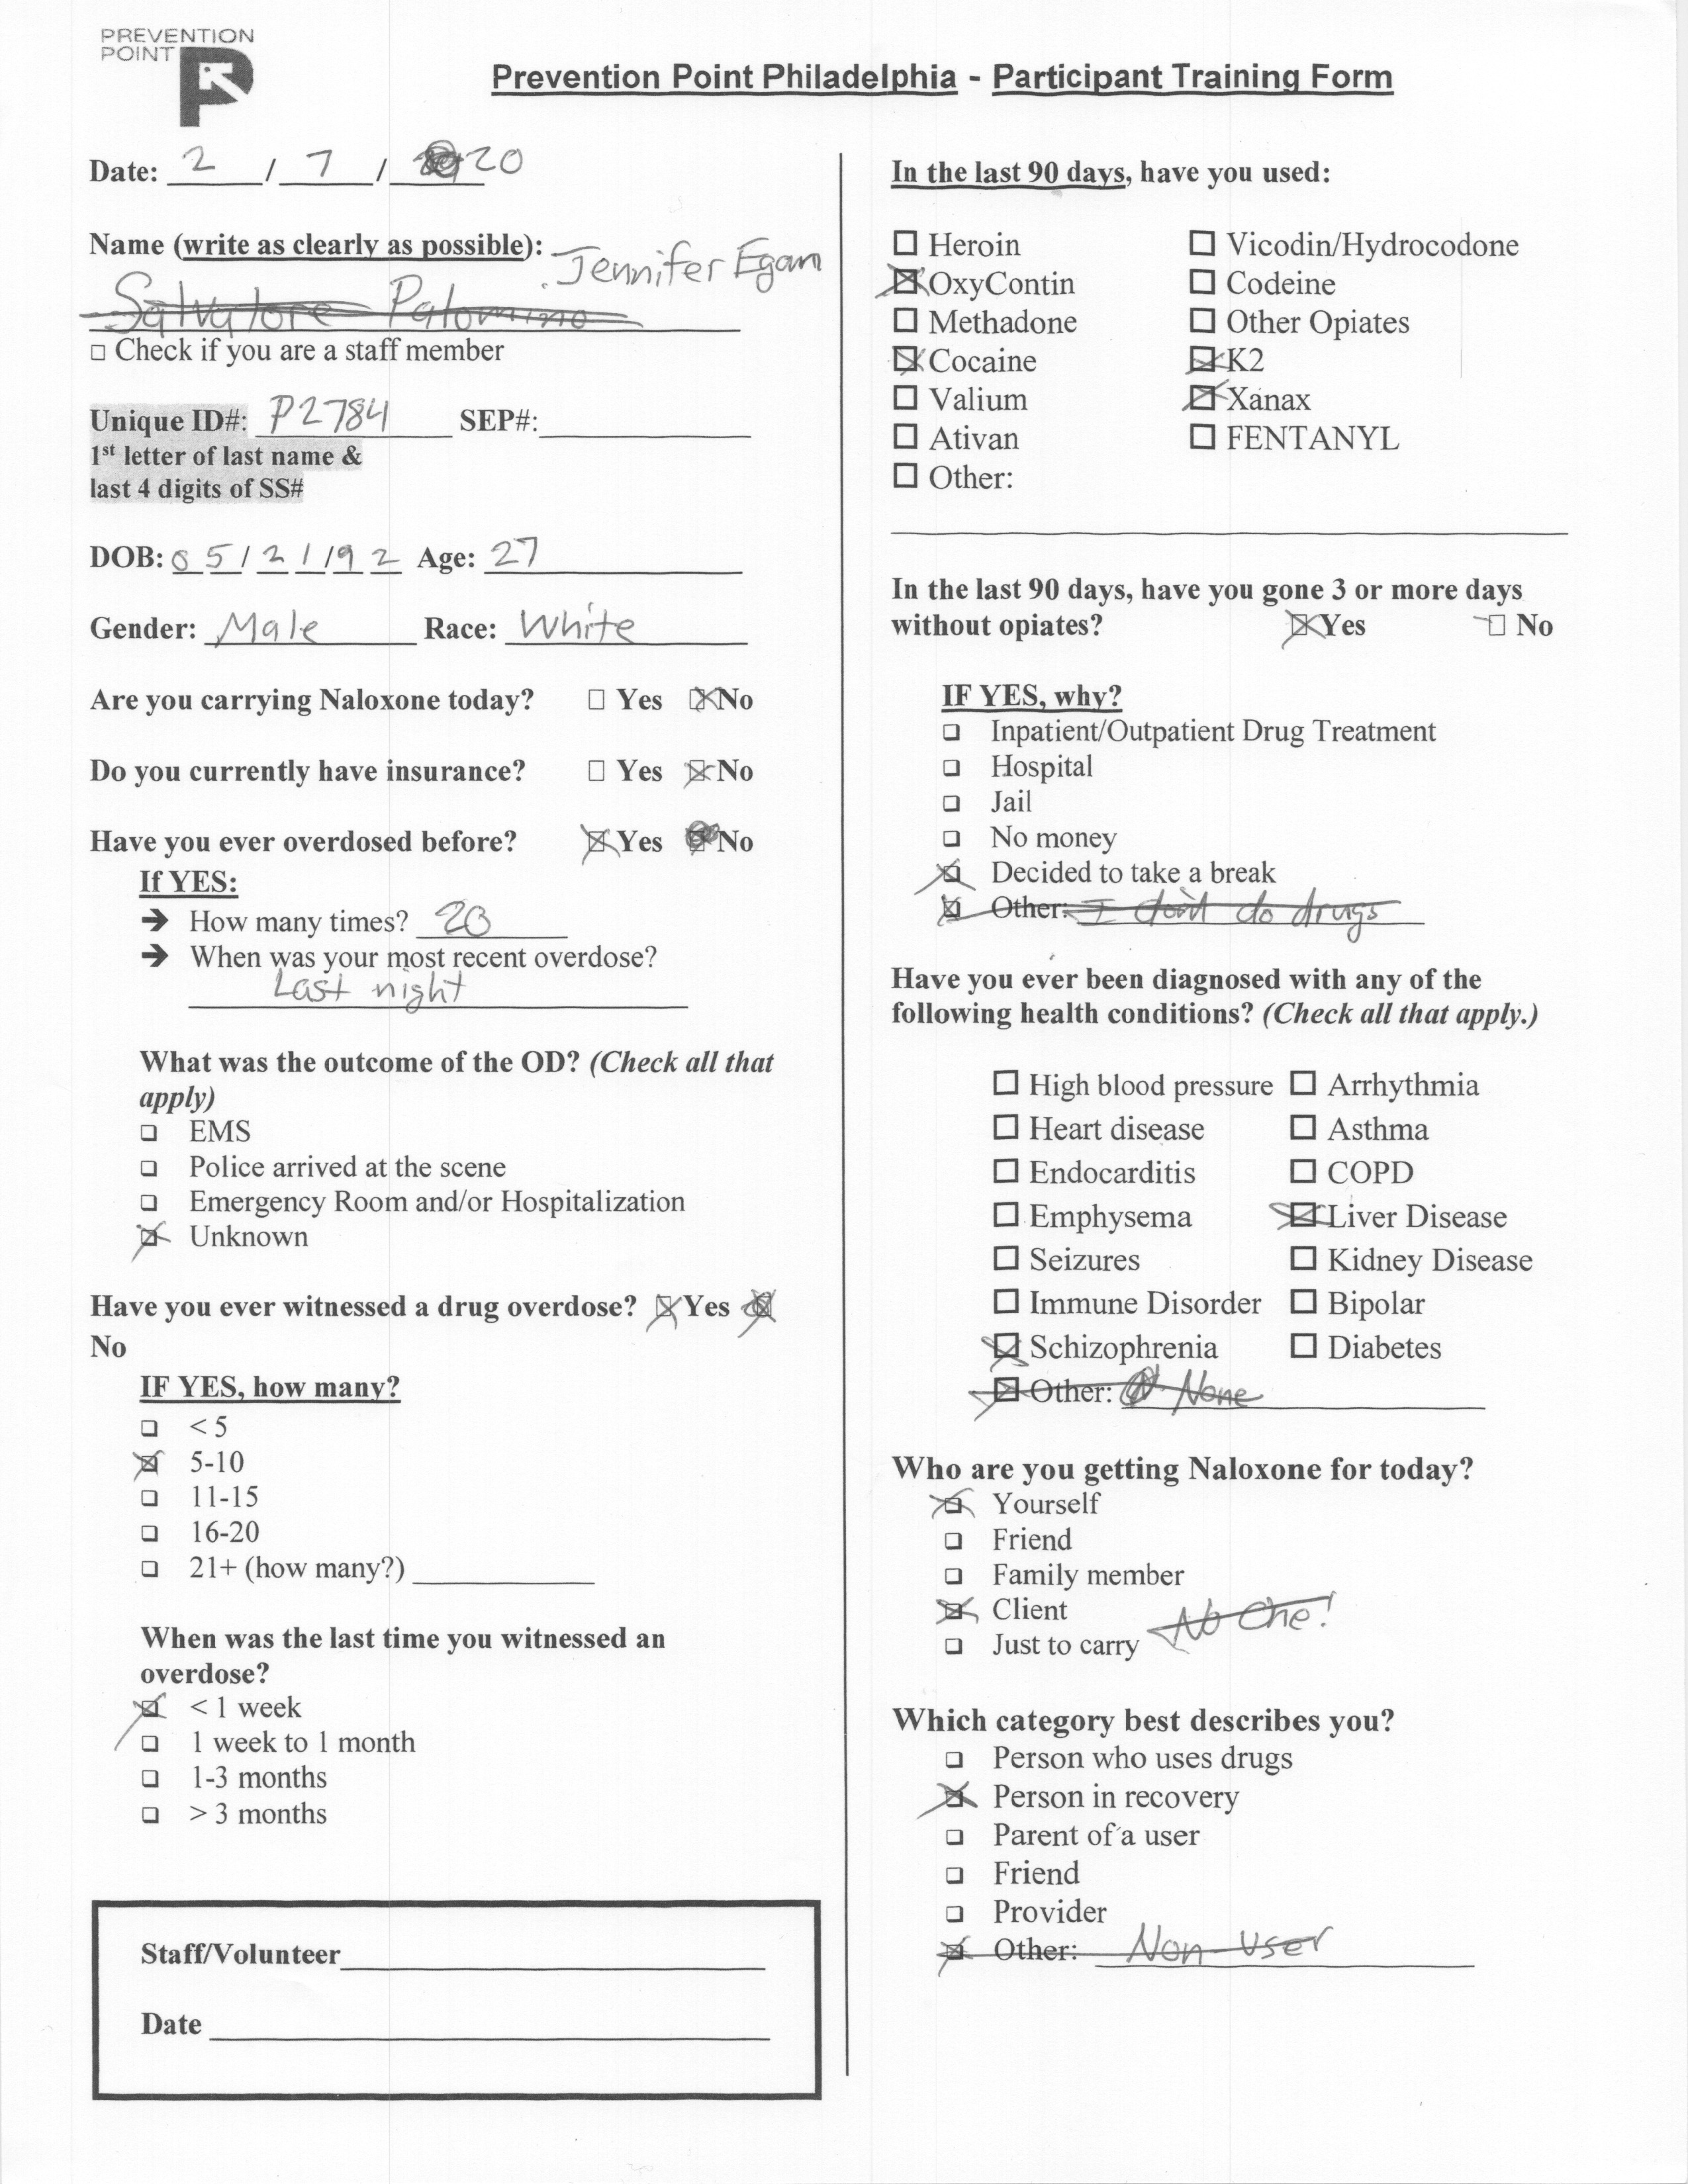 PREVENTION
POINT
Prevention Point Philadelphia - Participant Training Form
Date: 2 / 7 / 20
Name (write as clearly as possible): Jennifer Egan
Salvatore Palomino
Check if you are a staff member
Unique ID#: P2784 SEP#:
1st letter of last name &
last 4 digits of SS#
DOB: 05/21/92 Age: 27
Gender: Male Race: White
Are you carrying Naloxone today? Yes No
Do you currently have insurance? Yes No
Have you ever overdosed before? Yes No
If YES:
→ How many times? 20
→ When was your most recent overdose?
Last night
What was the outcome of the OD? (Check all that
apply)
EMS
Police arrived at the scene
Emergency Room and/or Hospitalization
Unknown
Have you ever witnessed a drug overdose? Yes
No
IF YES, how many?
< 5
5-10
11-15
16-20
21+ (how many?)
When was the last time you witnessed an
overdose?
< 1 week
1 week to 1 month
1-3 months
> 3 months
Staff/Volunteer
Date
In the last 90 days, have you used:
Heroin Vicodin/Hydrocodone
OxyContin Codeine
Methadone Other Opiates
Cocaine K2
Valium Xanax
Ativan FENTANYL
Other:
In the last 90 days, have you gone 3 or more days
without opiates? Yes No
IF YES, why?
Inpatient/Outpatient Drug Treatment
Hospital
Jail
No money
Decided to take a break
Other: I don't do drugs
Have you ever been diagnosed with any of the
following health conditions? (Check all that apply.)
High blood pressure Arrhythmia
Heart disease Asthma
Endocarditis COPD
Emphysema Liver Disease
Seizures Kidney Disease
Immune Disorder Bipolar
Schizophrenia Diabetes
Other: None
Who are you getting Naloxone for today?
Yourself
Friend
Family member
Client
No One!
Just to carry
Which category best describes you?
Person who uses drugs
Person in recovery
Parent of a user
Friend
Provider
Other: Non-User